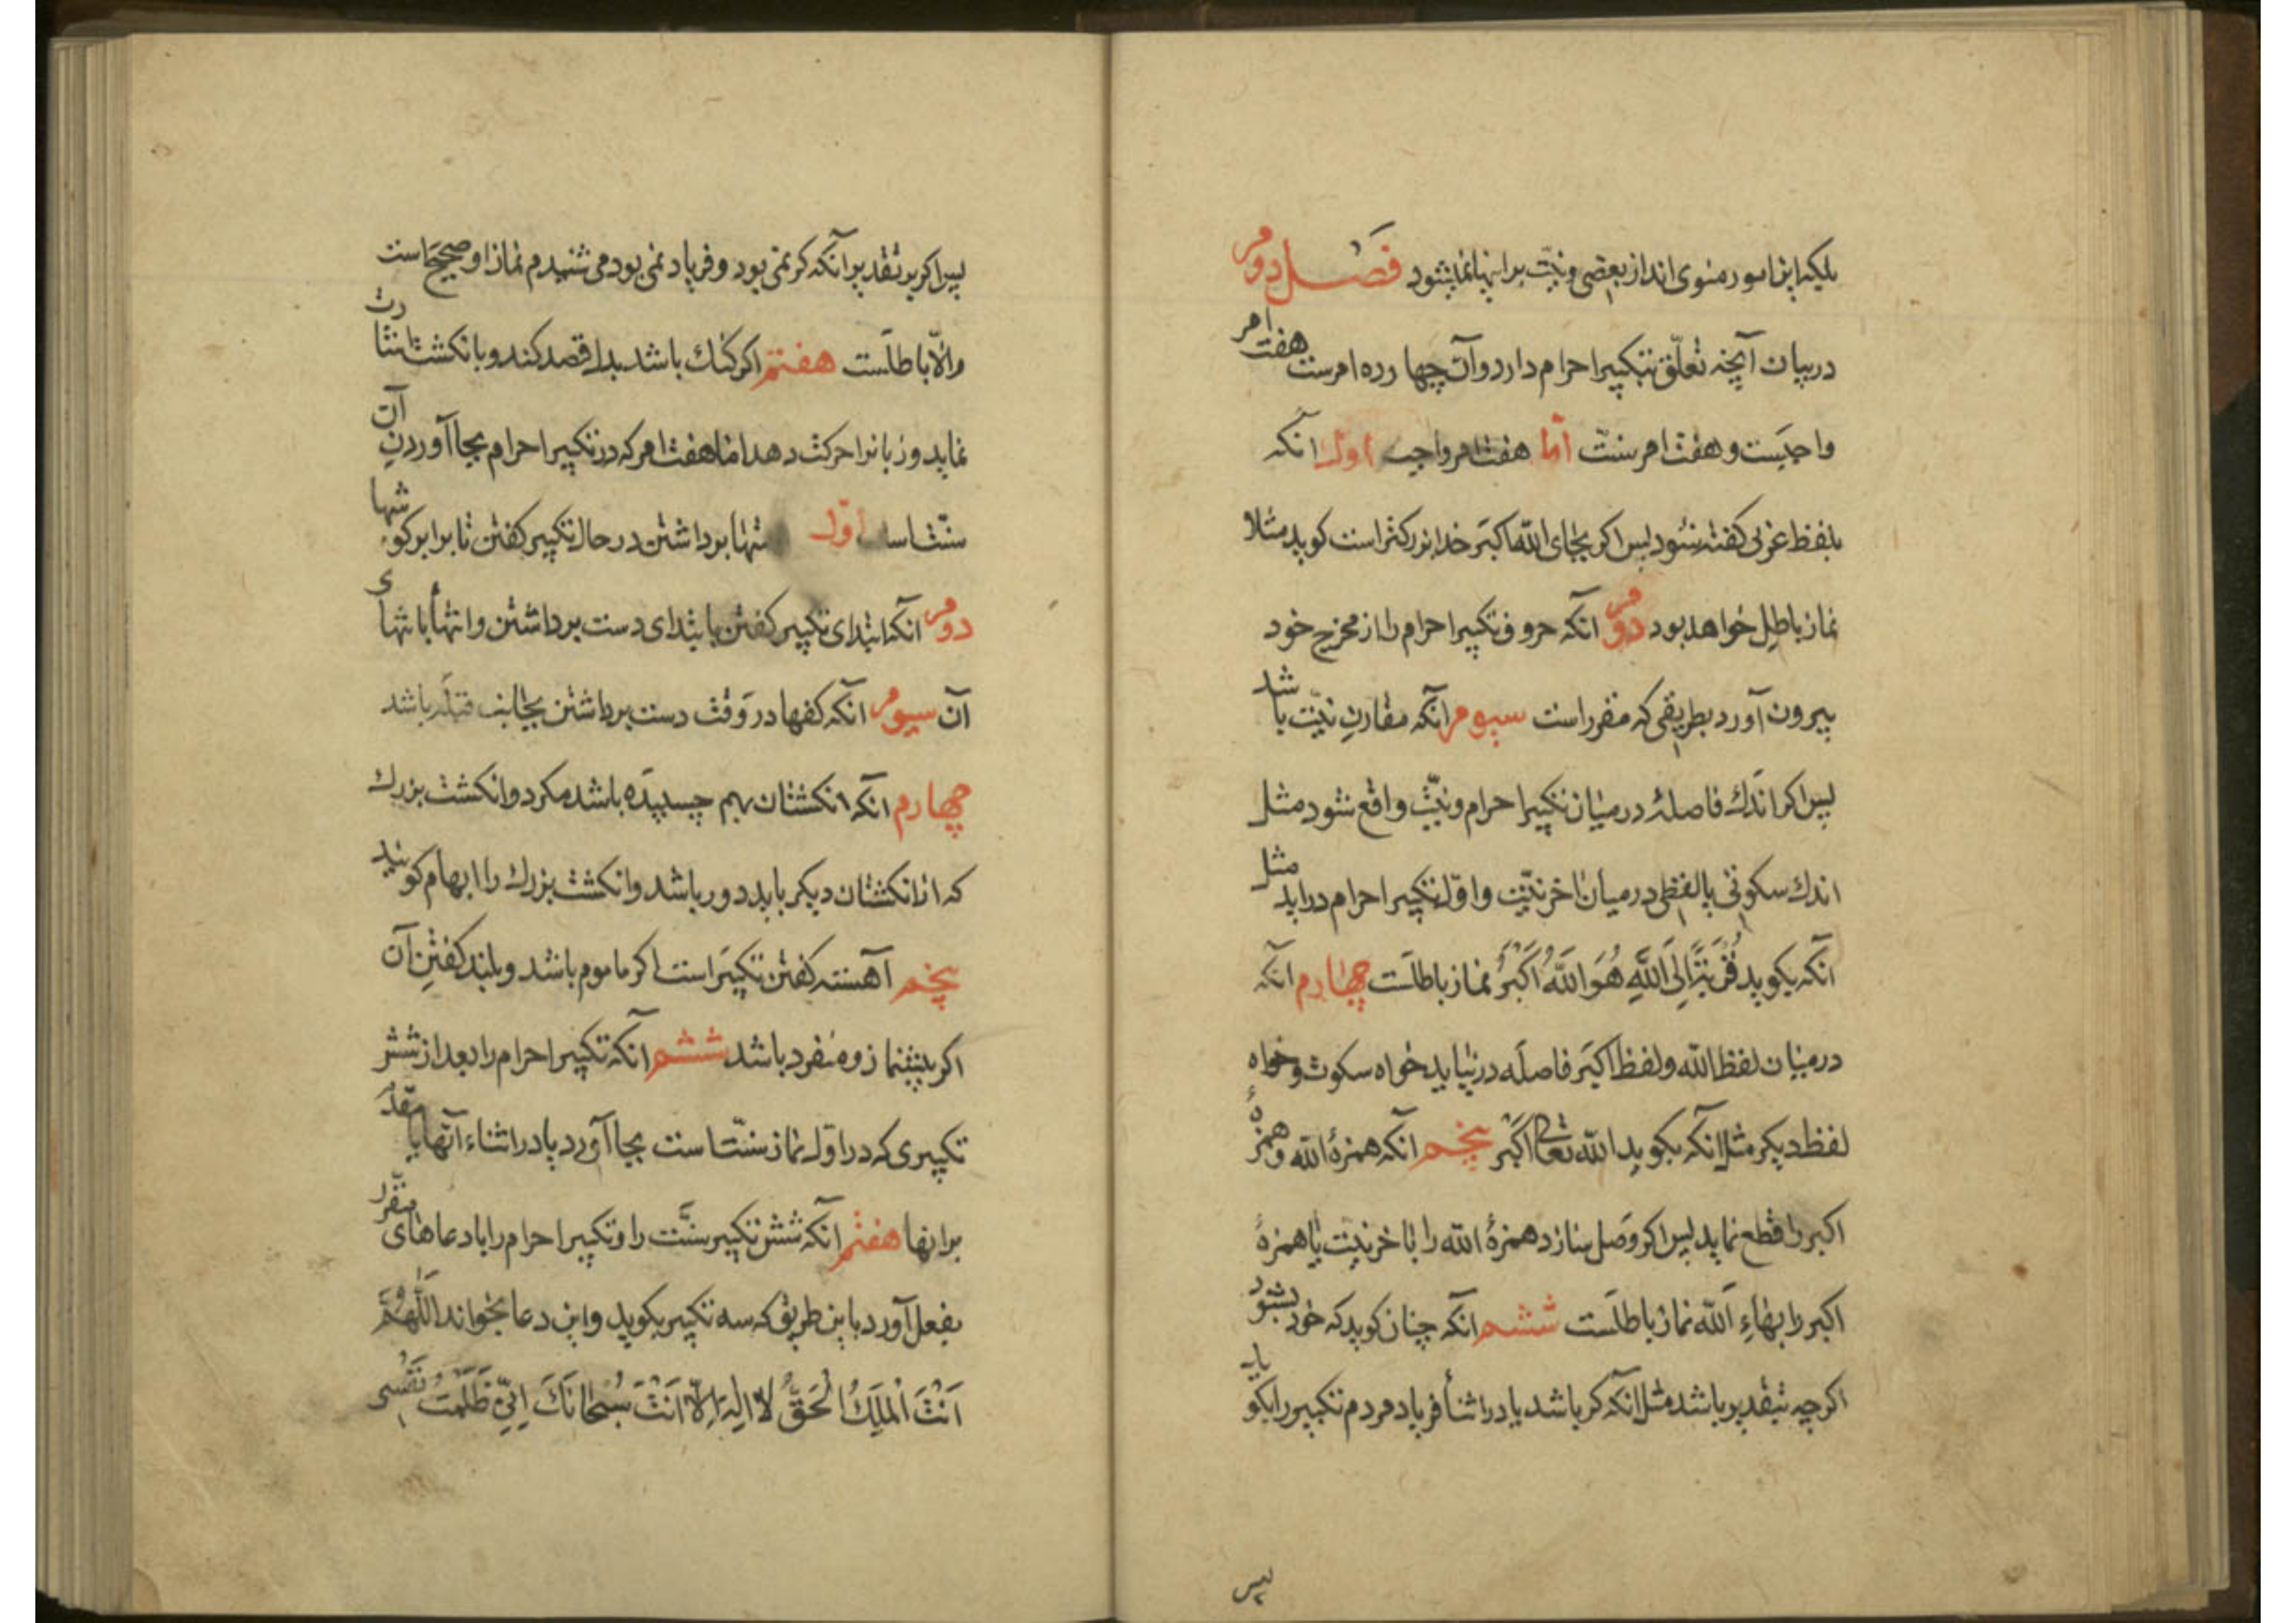 بلکه این امور منوی اند از بعضی و نیّت بر اینها نمیشود فَصْل دوم
در بیان آنچه تعلّق بتکبیر احرام دارد و آن چهارده امرست هفت امر
واجبَست و هفت امر سنّت امّا هفت امر واجب اول آنکه
بلفظ عربی کفته شود بس اکر بجای الله اکبَر خدا بزرکتر است کوید مثلا
نماز باطِل خواهد بود دوم آنکه حروف تکبیر احرام را از مخرج خود
بیرون آورد بطریقی که مقرر است سیوم آنکه مقارنِ نیّت باشد
پس اکر اندَك فاصلهٔ در میان تکبیر احرام و نیّت واقع شود مثل
اندك سکوتی یا لفظی در میان اخر نیّت و اوّل تکبیر احرام دراید مثل
آنکه بکوید قُرْبَةً اِلَی اللّهِ هُوَ اللّهُ اَکْبَرُ نماز باطلَست چهارم آنکه
در میان لفظ الله و لفظ اکبَر فاصلَه در نیاید خواه سکوت و خواه
لفظ دیکر مثل آنکه بکوید الله تعالی اَکْبَر پنجم آنکه همزهٔ الله و همزهٔ
اکبر را قطع نماید پس اکر وَصل سازد همزهٔ الله را باخر نیت یا همزهٔ
اکبر را بهاءِ اَلله نماز باطلَست ششم آنکه چنان کوید که خود بشنود
اکرچه بتقدیر باشد مثل آنکه کر باشد یا در اثنأ فریاد مردم تکبیر را بکوید
پس
پس اکر بر تقدیر آنکه کر نمی بود و فریاد نمی بود می شنیدم نماز او صحیحَ است
والّا باطلَست هفتم اکر کنك باشد بدل قصد کند و بانکشت اشارت
نماید و زبانرا حرکت دهد اما هفت امر که در تکبیر احرام بجا آوردنِ آن
سنّت است اوّل دستها برداشتن در حال تکبیر کفتن تا برابر کوشها
دوم آنکه ابتدای تکبیر کفتن بابتدای دست برداشتن و انتهأ بانتهای
آن سیوم آنکه کفها در وَقت دست برداشتن بجانب قبلَه باشد
چهارم آنکه انکشتان بهم چسبیدَه باشد مکر دو انکشت بزرك
که از انکشتان دیکر باید دور باشد و انکشت بزرك را ابهام کویند
پنجم آهسته کفتن تکبیَر است اکر ماموم باشد و بلند کفتنِ آن
اکر پیشنماز و منفرد باشد ششم آنکه تکبیر احرام را بعد از شش
تکبیری که در اوّل نماز سنّت است بجا آورد یا در اثناء آنها یا مقدّم
بر انها هفتم آنکه شش تکبیر سنَّت را و تکبیر احرام را با دعاهای مقرّر
بفعل آورد باین طریق که سه تکبیر بکوید و این دعا بخواند اَللّهُمَّ
اَنْتَ اَلْمَلِكُ الْحَقُّ لا اِلهَ اِلّا اَنْتَ سُبْحانَكَ اِنّی ظَلَمْتُ نَفْسی